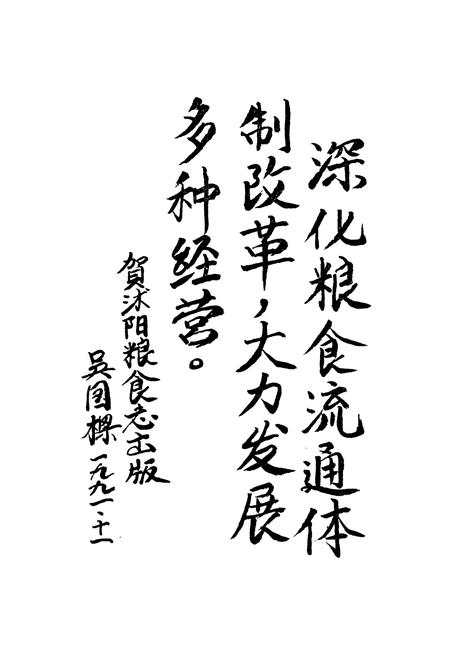 深化粮食流通体
制改革，大力发展
多种经营。
賀沭阳粮食志出版
吴国樑一九九一·十一